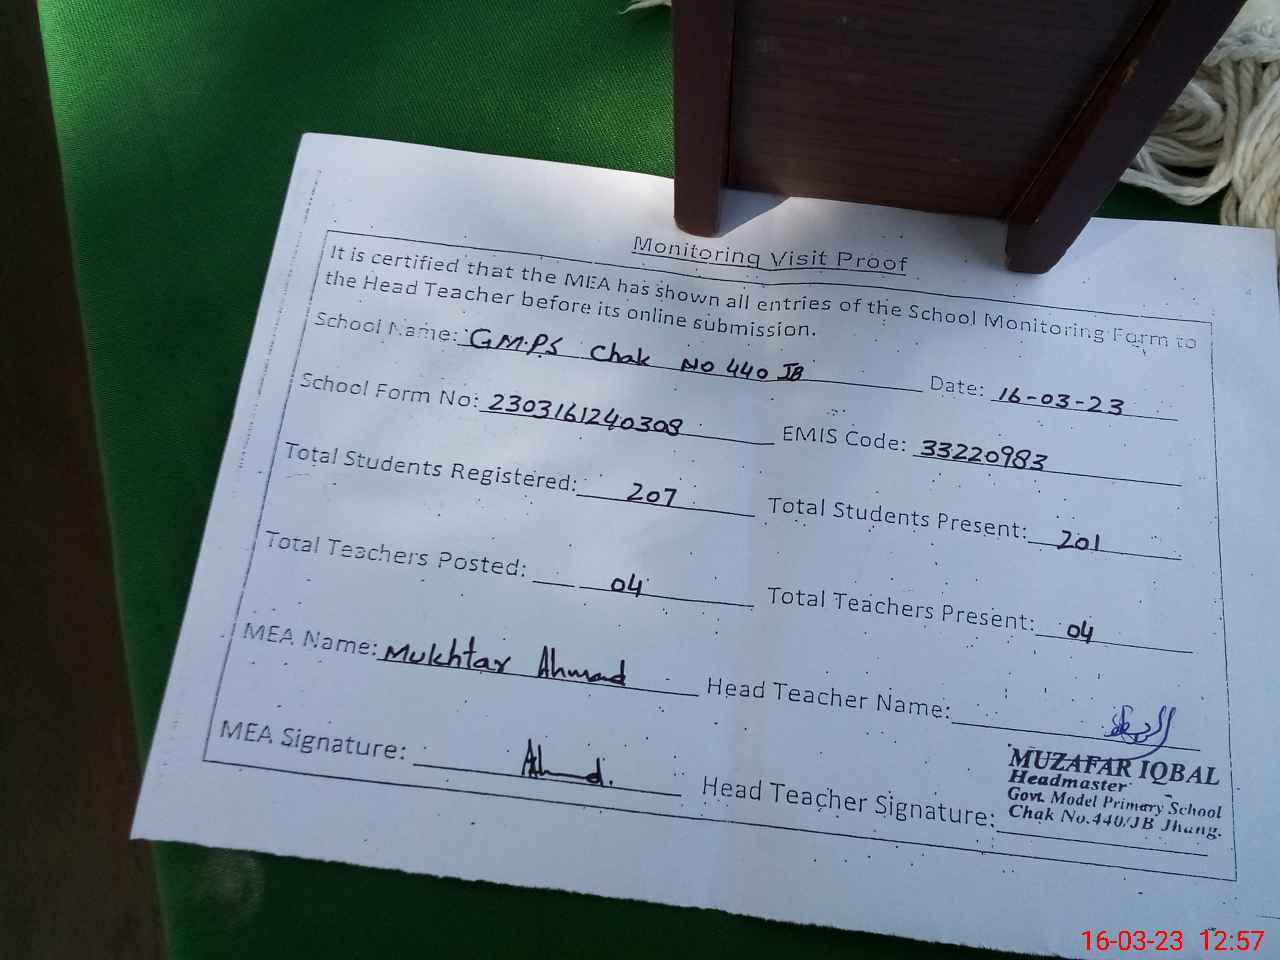 Monitoring Visit Proof
It is certified that the MEA has shown all entries of the School Monitoring Form to
the Head Teacher before its online submission.
School Name: GMPS Chak No 440 JB Date: 16-03-23
School Form No: 2303161240308 EMIS Code: 33220983
Total Students Registered: 207 Total Students Present: 201
Total Teachers Posted: 04 Total Teachers Present: 04
MEA Name: Mukhtar Ahmad Head Teacher Name:
MEA Signature: Ahmd. Head Teacher Signature:
MUZAFAR IQBAL
Headmaster
Govt. Model Primary School
Chak No.440/JB Jhang.
16-03-23 12:57